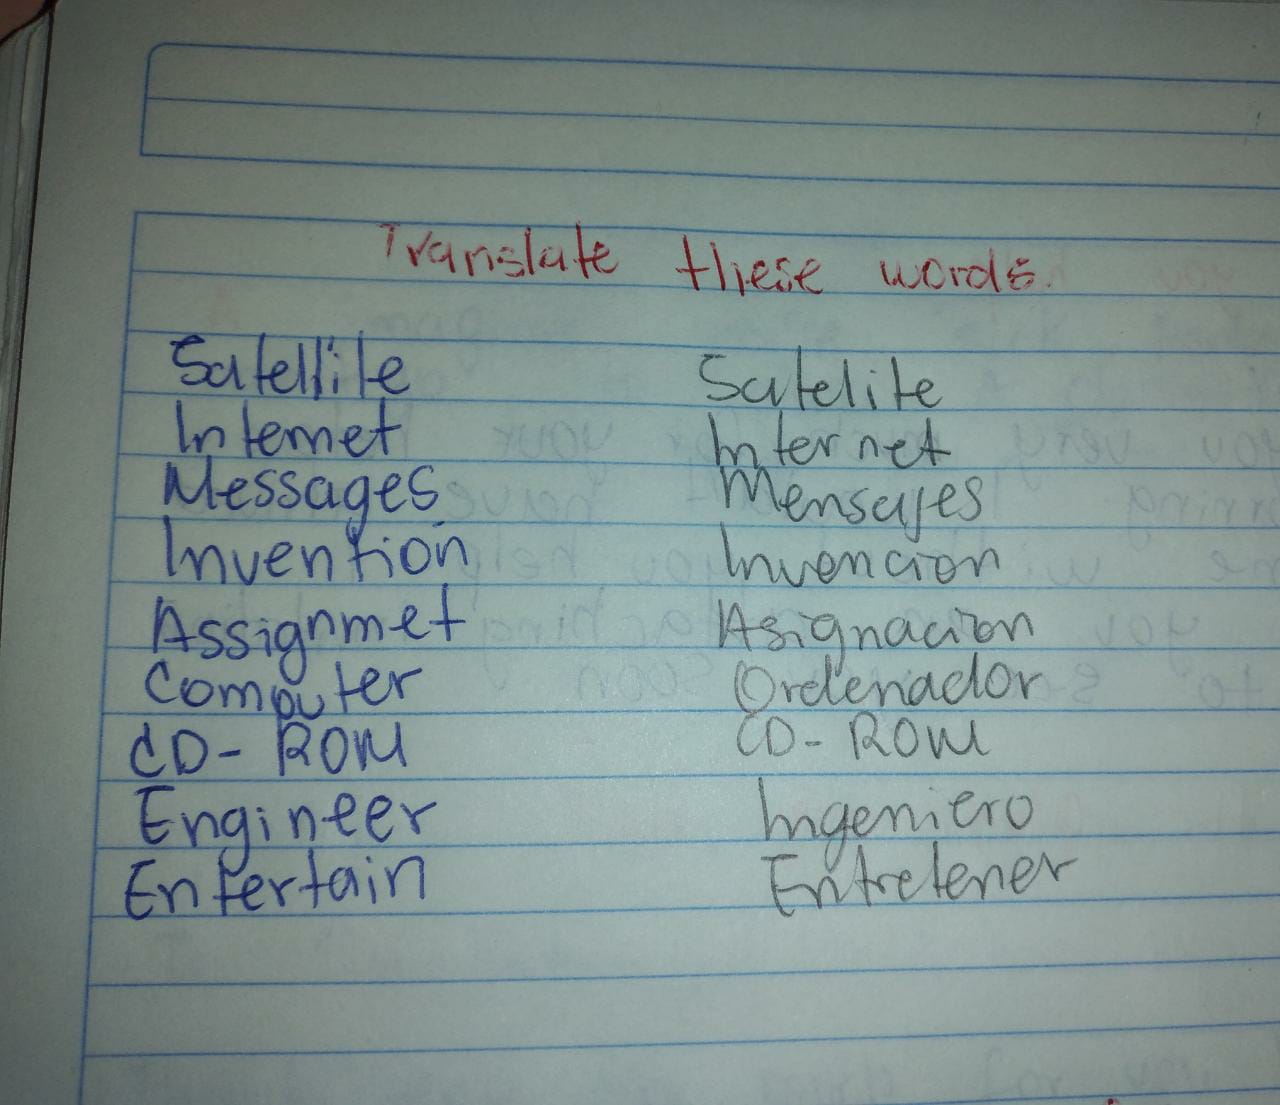 Translate these words.
Satellite Satelite
Internet Internet
Messages Mensajes
Invention Invencion
Assignmet Asignacion
Computer Ordenador
CD-ROM CD-ROM
Engineer Ingeniero
Entertain Entretener